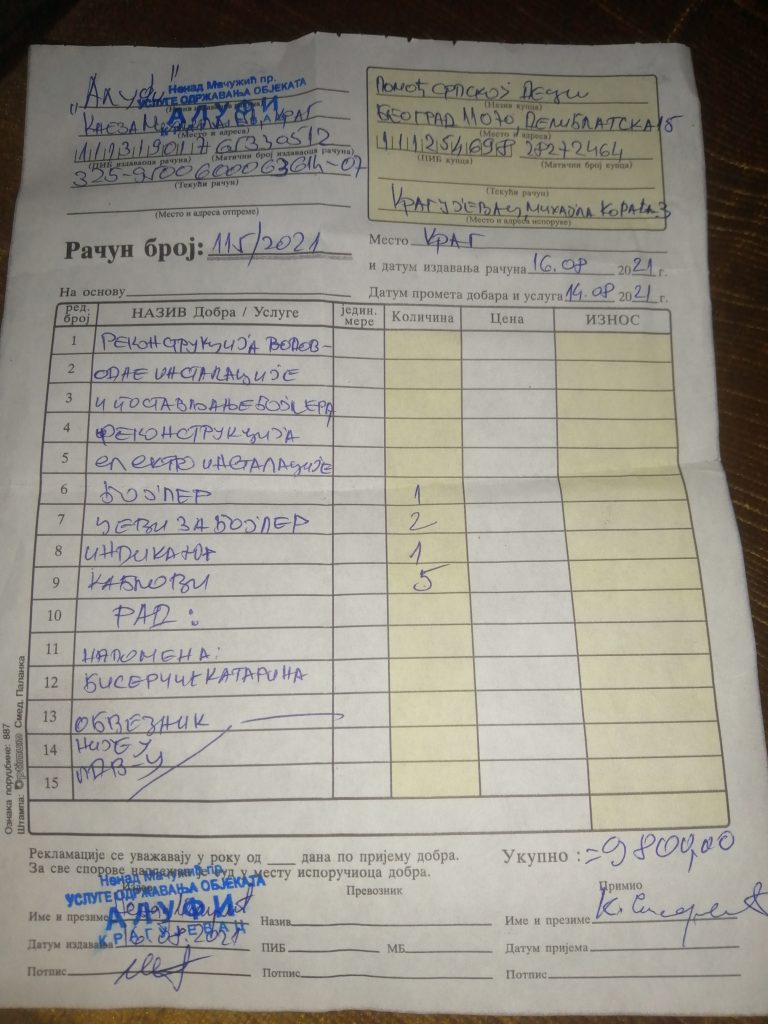 „Алуфи"
Ненад Мачужић пр.
УСЛУГЕ ОДРЖАВАЊА ОБЈЕКАТА
АЛУФИ
КРАГ
(Место и адреса)
111319017 65330512
(ПИБ издаваоца рачуна) (Матични број издаваоца рачуна)
325-9500600063614-07
(Текући рачун)
(Место и адреса отпреме)
ПОМОЋ СРПСКОЈ ДЕЦИ
(Назив купца)
БЕОГРАД 11070 ДЕЛИБЛАТСКА 15
(Место и адреса)
111254698 28272464
(ПИБ купца) (Матични број купца)
(Текући рачун)
КРАГУЈЕВАЦ, МИХАЈЛА
(Место и адреса испоруке)
Рачун број: 115/2021
Место КРАГ
и датум издавања рачуна 16.08 2021 г.
На основу
Датум промета добара и услуга 14.08 2021 г.
ред. број НАЗИВ Добра / Услуге једин. мере Количина Цена ИЗНОС
1 РЕКОНСТРУКЦИЈА ВОДОВ-
2 ОДНЕ ИНСТАЛАЦИЈЕ
3 И ПОСТАВЉАЊЕ БОЈЛЕРА
4 РЕКОНСТРУКЦИЈА
5 ЕЛЕКТРО ИНСТАЛАЦИЈЕ
6 БОЈЛЕР 1
7 ЦЕВИ ЗА БОЈЛЕР 2
8 1
9 КАБЛОВИ 5
10 РАД:
11 НАПОМЕНА:
12 БИСЕРЧИЋ КАТАРИНА
13 ОБВЕЗНИК
14 НИЈЕ У
15 ПДВ-У
Ознака поруџбине: 887
Штампа: Смед. Паланка
Рекламације се уважавају у року од ___ дана по пријему добра.
За све спорове надлежан је суд у месту испоручиоца добра.
Укупно : =9800,00
Ненад Мачужић пр.
УСЛУГЕ ОДРЖАВАЊА ОБЈЕКАТА
АЛУФИ
КРАГУЈЕВАЦ
Превозник
Примио
Име и презиме
Назив
Име и презиме
Датум издавања 16.08.2021
ПИБ МБ
Датум пријема
Потпис
Потпис
Потпис